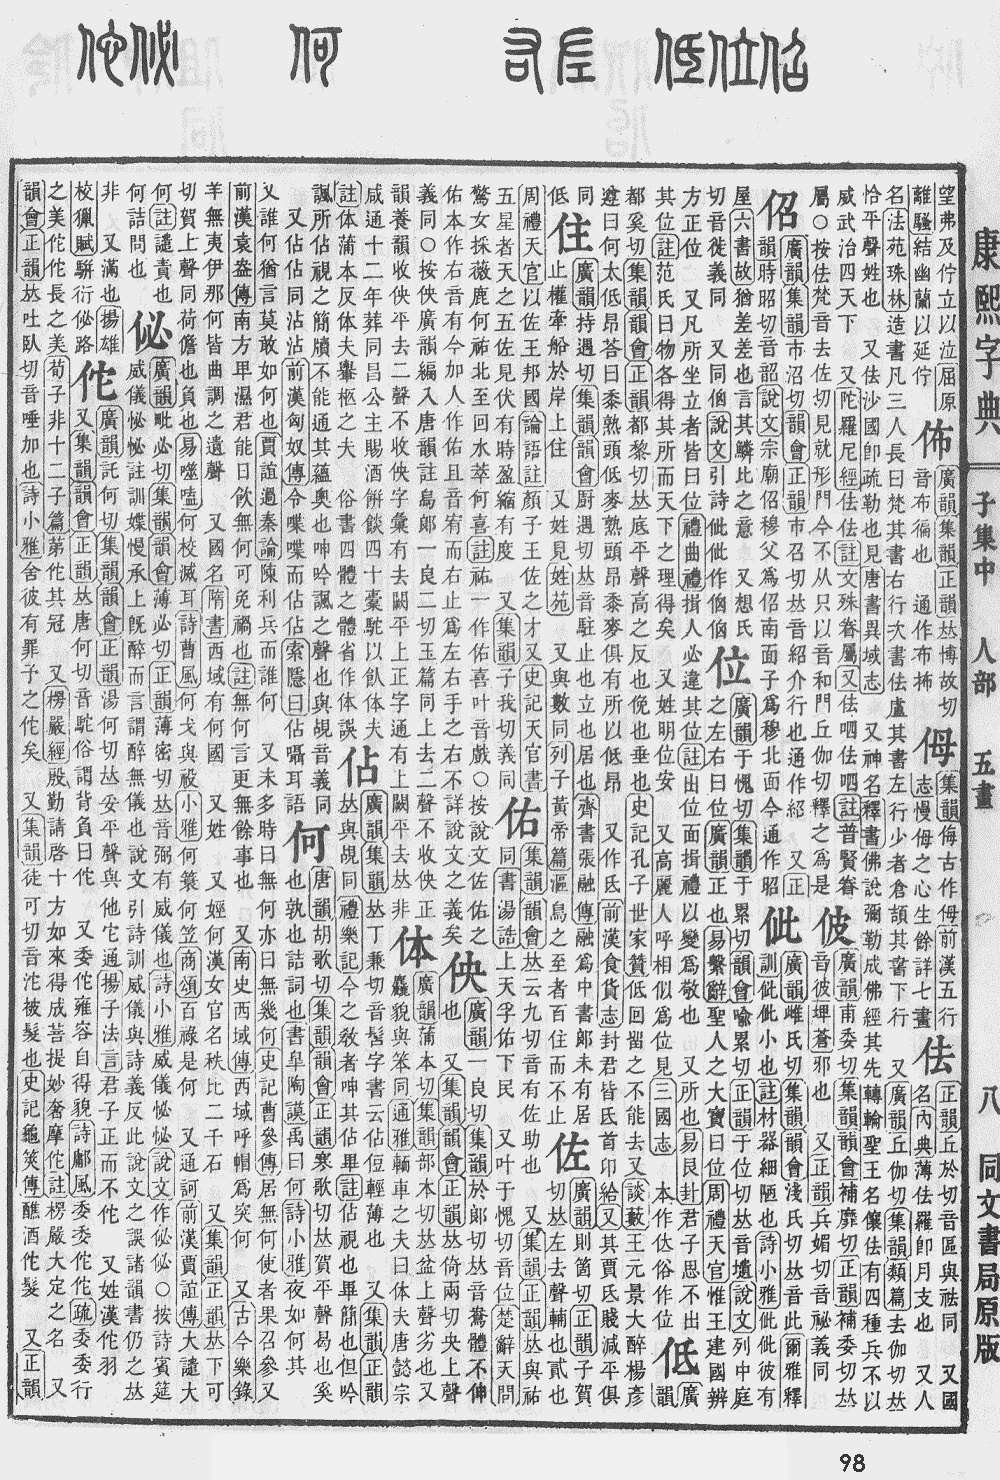 康熙字典 子集中 人部 五畫 八 同文書局原版
望弗及佇立以泣屈原
離騷結幽蘭以延佇
佈 廣韻集韻正韻𠀤博故切
音布徧也 通作布抪
㑄 集韻侮古作㑄前漢五行
志慢㑄之心生餘詳七畫
佉 正韻丘於切音區與祛同 又國
名內典薄佉羅卽月支也 又人
名法苑珠林造書凡三人長曰梵其書右行次書佉盧其書左行少者倉頡其書下行 又廣韻丘伽切集韻類篇去伽切𠀤
恰平聲姓也 又佉沙國卽疏勒也見唐書異域志 又神名釋書佛說彌勒成佛經其先轉輪聖王名儴佉有四種兵不以
威武治四天下 又陀羅尼經佉佉註文殊眷屬又佉呬佉呬註普賢眷
屬○按佉梵音去佐切見就形門今不从只以音和門丘伽切釋之爲是
佊 廣韻甫委切集韻韻會補靡切正韻補委切𠀤
音彼埤蒼邪也 又正韻兵媚切音祕義同
佋 廣韻集韻市沼切韻會正韻市召切𠀤音紹介行也通作紹 又正
韻時昭切音韶說文宗廟佋穆父爲佋南面子爲穆北面今通作昭
佌 廣韻雌氏切集韻韻會淺氏切𠀤音此爾雅釋
訓佌佌小也註材器細陋也詩小雅佌佌彼有
屋六書故猶差差也言其鱗比之意 又想氏
切音徙義同 又同㑳說文引詩佌佌作㑳㑳
位 廣韻于愧切集韻于累切韻會喻累切正韻于位切𠀤音壝說文列中庭
之左右曰位廣韻正也易繫辭聖人之大寶曰位周禮天官惟王建國辨
方正位 又凡所坐立者皆曰位禮曲禮揖人必違其位註出位而揖禮以變爲敬也 又所也易艮卦君子思不出
其位註范氏曰物各得其所而天下之理得矣 又姓明位安 又高麗人呼相似爲位見三國志 俗作位
低 廣
韻
都奚切集韻韻會正韻都黎切𠀤底平聲高之反也俛也垂也史記孔子世家贊低回留之不能去又談藪王元景大醉楊彥
遵曰何太低昂答曰黍熟頭低麥熟頭昂黍麥俱有所以低昂 又作氐前漢食貨志封君皆氐首卬給又其賈氐賤減平俱
同
低
住 廣韻持遇切集韻韻會廚遇切𠀤音駐止也立也居也齊書張融傳融爲中書郞未有居
止權牽船於岸上住 又姓見姓苑 又與數同列子黃帝篇漚鳥之至者百住而不止
佐 廣韻則箇切正韻子賀
切𠀤左去聲輔也貳也
周禮天官以佐王邦國論語註顏子王佐之才又史記天官書
五星者天之五佐見伏有時盈縮有度 又集韻子我切義同
佑 集韻韻會𠀤云九切音有佐助也 又集韻正韻𠀤與祐
同書湯誥上天孚佑下民 又叶于愧切音位楚辭天問
驚女採薇鹿何祐北至回水萃何喜註祐一作佑喜叶音戲○按說文左佑之
佑本作右音有今加人作佑且音宥而右止爲左右手之右不詳說文之義矣
佒 廣韻一良切集韻於郞切𠀤音鴦體不伸
也 又集韻韻會正韻𠀤倚兩切央上聲
義同○按佒廣韻編入唐韻註烏郞一良二切玉篇同上去二聲不收佒正
韻養韻收佒平去二聲不收佒字彙有去闕平上正字通有上闕平去𠀤非
体 廣韻蒲本切集韻部本切𠀤盆上聲劣也又
麤貌與笨同通雅輀車之夫曰体夫唐懿宗
咸通十二年葬同昌公主賜酒餠餤四十橐駝以飮体夫
註体蒲本反体夫轝柩之夫 俗書四體之體省作体誤
佔 廣韻集韻𠀤丁兼切音髻字書云佔侸輕薄也 又集韻正韻
𠀤與覘同禮樂記今之敎者呻其佔畢註佔視也畢簡也但吟
諷所佔視之簡牘不能通其蘊奧也呻吟諷之聲也與覘音義同
又佔佔同沾沾前漢匈奴傳今喋喋而佔佔索隱曰佔囁耳語
何 唐韻胡歌切集韻韻會正韻寒歌切𠀤賀平聲曷也奚
也孰也詰詞也書皐陶謨禹曰何詩小雅夜如何其
又誰何猶言莫敢如何也賈誼過秦論陳利兵而誰何 又未多時曰無何亦曰無幾何史記曹參傳居無何使者果召參又
前漢袁盎傳南方卑濕君能日飮無何可免禍也註無何言更無餘事也又南史西域傳西域呼帽爲突何 又古今樂錄
羊無夷伊那何皆曲調之遺聲 又國名隋書西域有何國 又姓 又娙何漢女官名秩比二千石 又集韻正韻𠀤下可
切賀上聲同荷儋也負也易噬嗑何校滅耳詩曹風何戈與祋小雅何蓑何笠商頌百祿是何 又通訶前漢賈誼傳大譴大
何註譴責也
何詰問也
佖 廣韻毗必切集韻韻會薄必切正韻薄密切𠀤音弼有威儀也詩小雅威儀怭怭說文作佖佖○按詩賓筵
威儀怭怭註訓媟慢承上旣醉而言謂醉無儀也說文引詩訓威儀與詩義反此說文之誤諸韻書仍之𠀤
非 又滿也揚雄
校獵賦駢衍佖路
佗 廣韻託何切集韻韻會正韻湯何切𠀤妥平聲與他它通揚子法言君子正而不佗 又姓漢佗羽
又集韻韻會正韻𠀤唐何切音駝俗謂背負曰佗 又委佗雍容自得貌詩鄘風委委佗佗疏委委行
之美佗佗長之美荀子非十二子篇第佗其冠 又楞嚴經殷勤請啓十方如來得成菩提妙奢摩佗註楞嚴大定之名 又
韻會正韻𠀤吐臥切音唾加也詩小雅舍彼有罪子之佗矣 又集韻徒可切音沱被髮也史記龜筴傳醮酒佗髮 又正韻
98